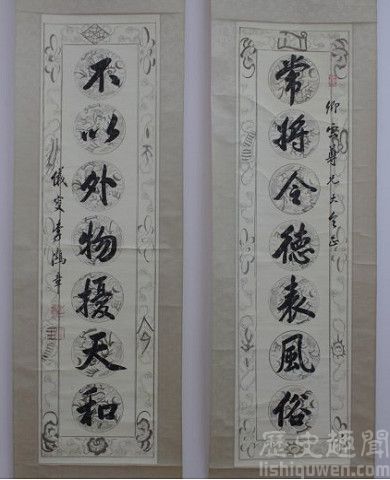 卿雲尊兄大人正
常將令德表風俗
不以外物擾天和
儀叟李鴻章
歷史趣聞
lishiquwen.com